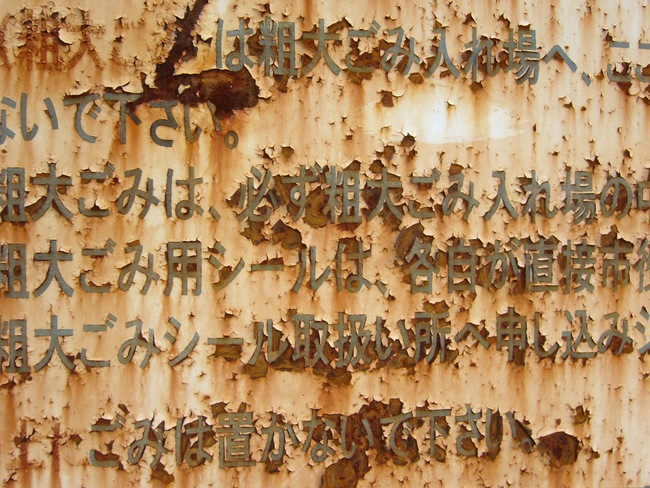 粗大ごみは粗大ごみ入れ場へ、ここ
ないで下さい。
粗大ごみは、必ず粗大ごみ入れ場の中
粗大ごみ用シールは、各自が直接市役
粗大ごみシール取扱い所へ申し込みシ
ごみは置かないで下さい。